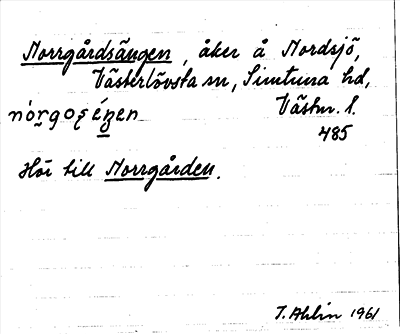 Norrgårdsängen, åker å Nordsjö,
Västerlövsta sn, Simtuna hd,
nórgoşéŋen Västm. l.
485
Hör till Norrgården.
T. Ahlin 1961